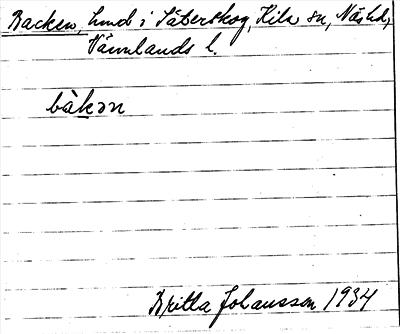 Backen, hmd i Säterskog, Kila sn, Näshd,
Värmlands l.
bàkən
Britta Johansson 1934